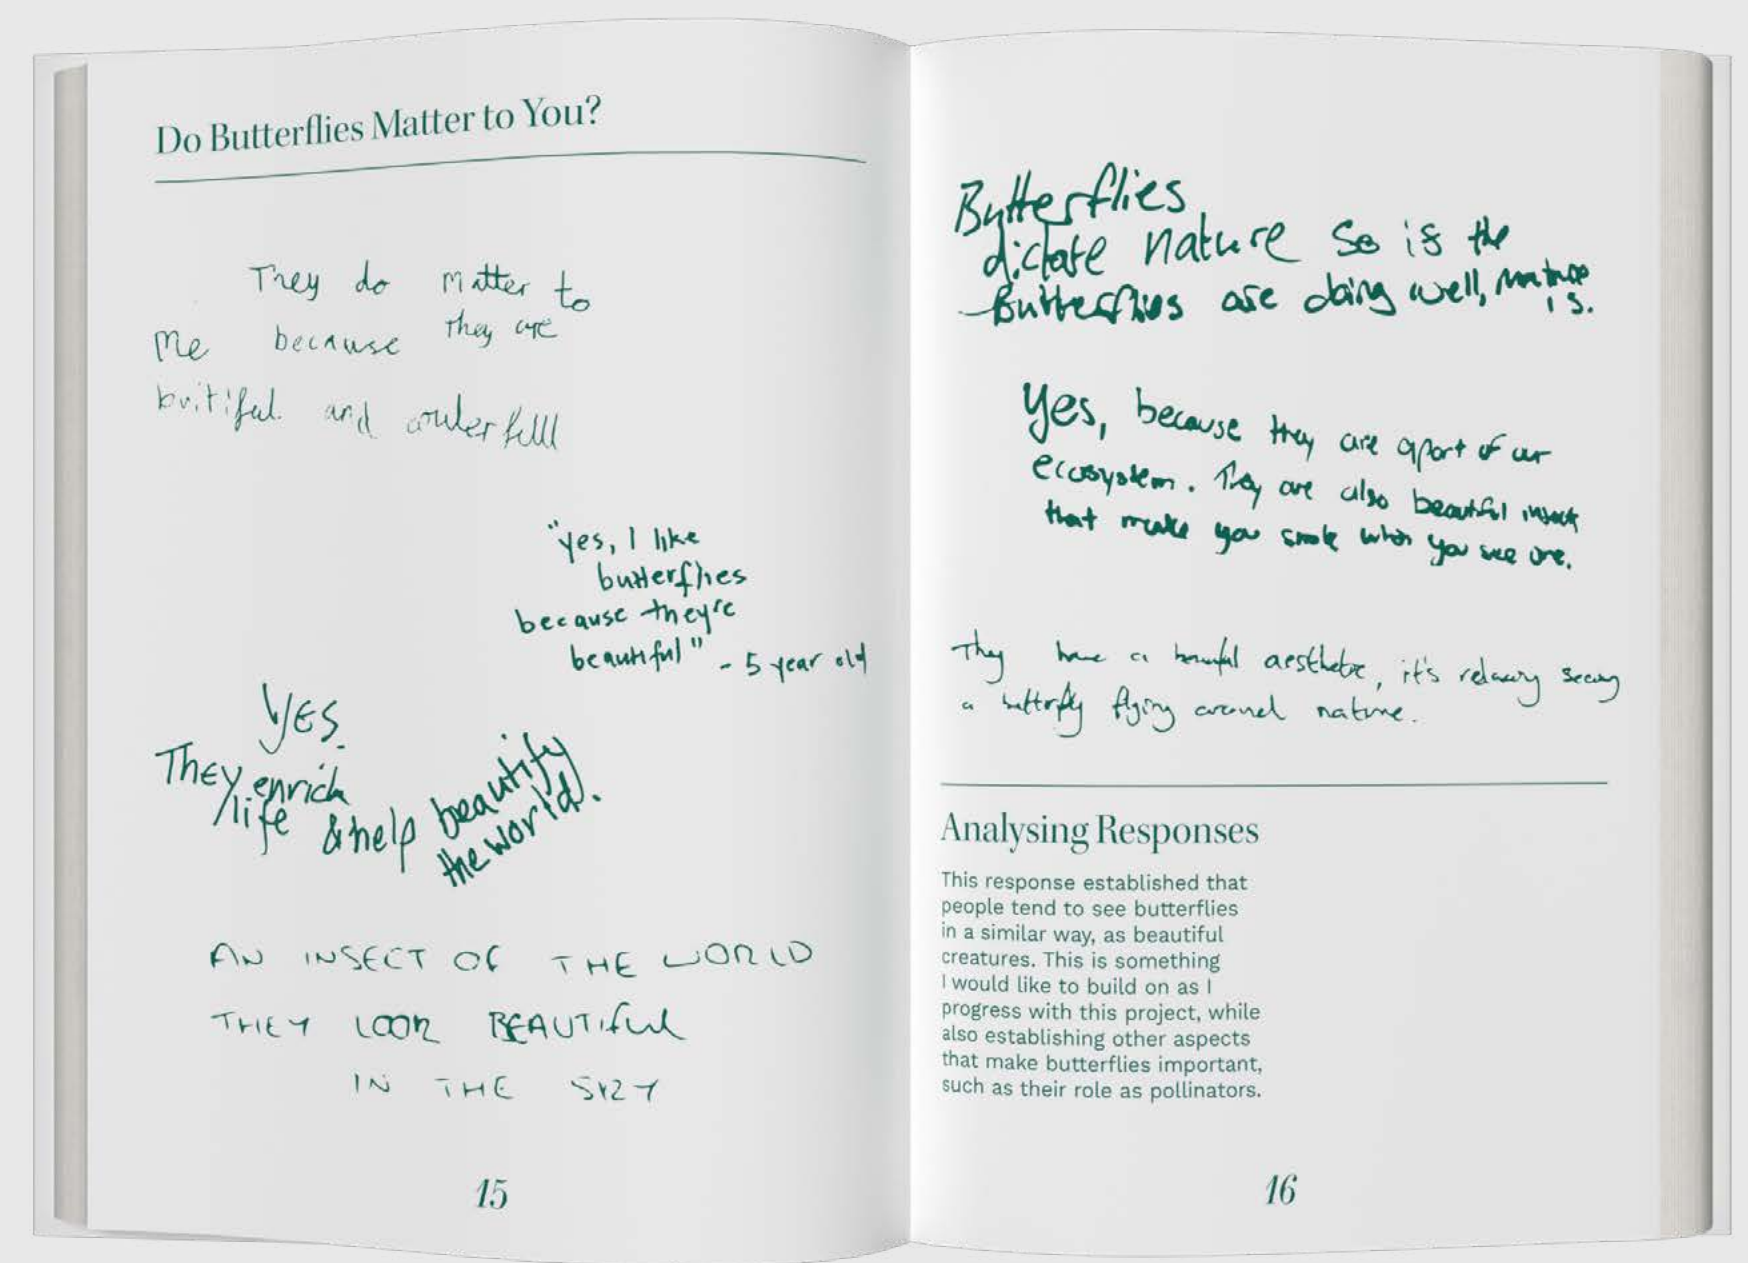 Do Butterflies Matter to You?
They do matter to
me because they are
butiful and wuler full
"yes, I like
butterflies
because they're
beautiful" - 5 year old
YES.
They enrich
life & help beautify
the world.
AN INSECT OF THE WORLD
THEY LOOK BEAUTIFUL
IN THE SKY
15
Butterflies
dictate nature so is the
Butterflies are doing well, nature
is.
Yes, because they are apart of our
ecosystem. They are also beautiful insect
that make you smile when you see one.
They have a beautiful aesthetic, it's relaxing seeing
a butterfly flying around nature.
Analysing Responses
This response established that
people tend to see butterflies
in a similar way, as beautiful
creatures. This is something
I would like to build on as I
progress with this project, while
also establishing other aspects
that make butterflies important,
such as their role as pollinators.
16